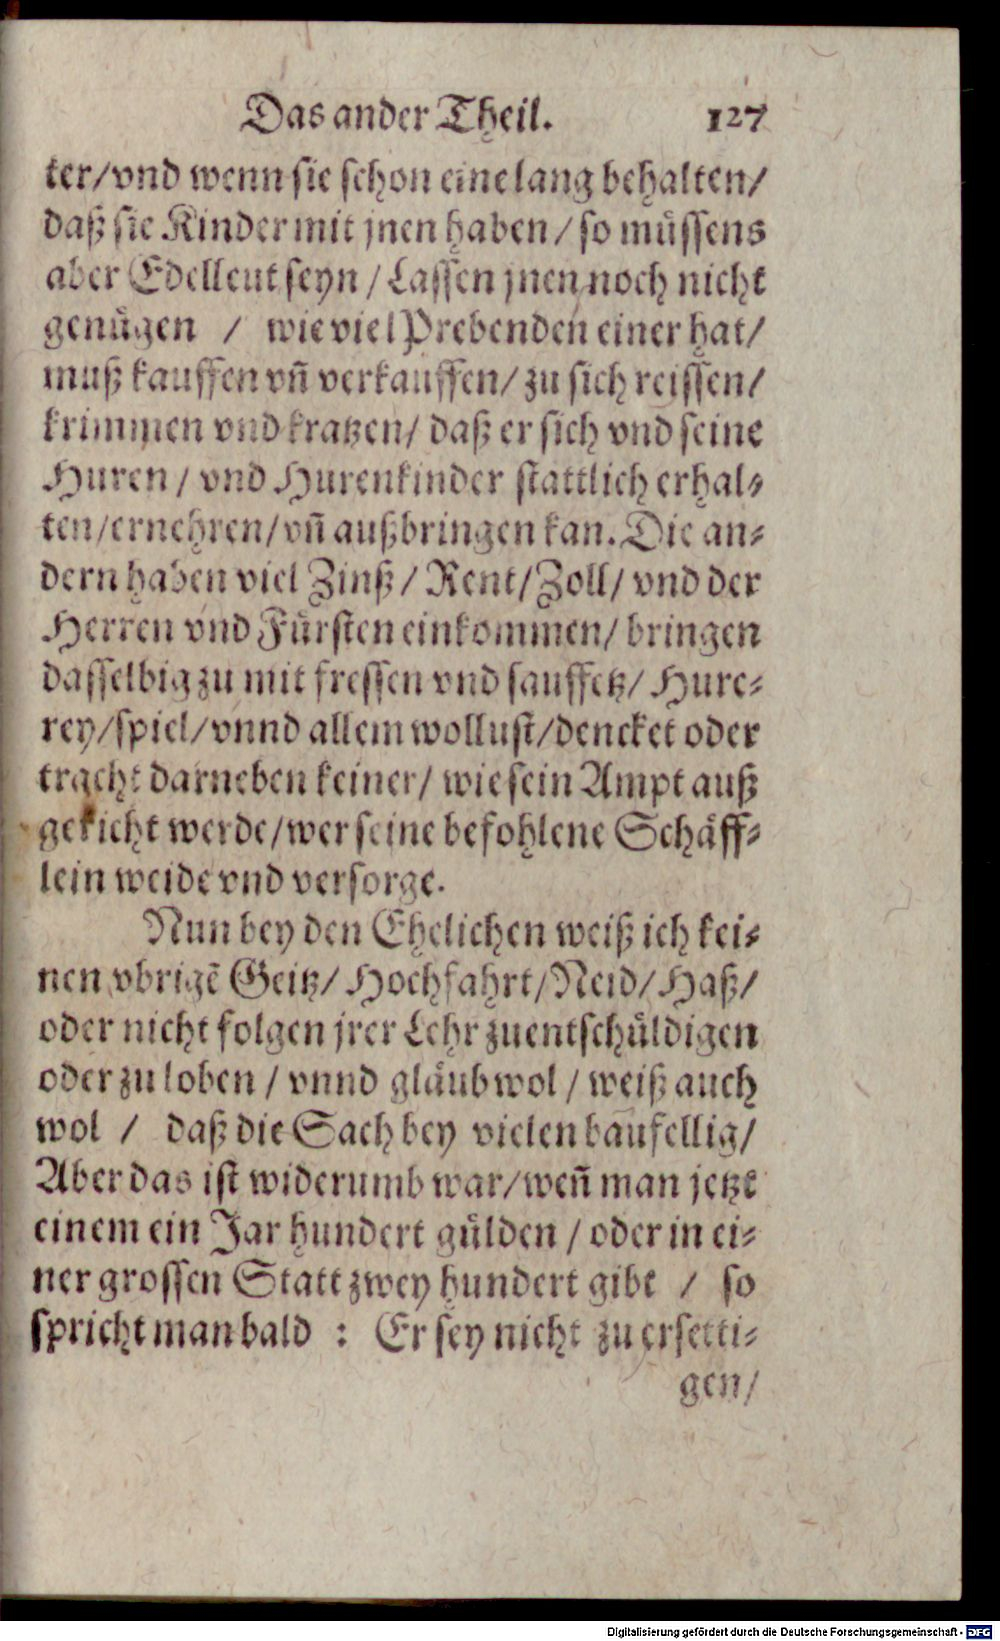 Das ander Theil. 127
ker/vnd wenn sie schon eine lang behalten/
daß sie Kinder mit jnen haben/so müssens
aber Edelleut seyn/Lassen jnen noch nicht
genügen / wie viel Prebenden einer hat/
muß kauffen vñ verkauffen/zu sich reissen/
krimmen vnd kratzen/ daß er sich vnd seine
Huren/ vnd Hurenkinder stattlich erhal-
ten/ernehren/vñ außbringen kan. Die an-
dern haben viel Zinß/ Rent/Zoll/ vnd der
Herren vnd Fürsten einkommen/ bringen
dasselbig zu mit fressen vnd sauffetz/ Hure-
rey/spiel/vnnd allem wollust/dencket oder
tracht darneben keiner/ wie sein Ampt auß
gericht werde/wer seine befohlene Schäff-
lein weide vnd versorge.
Nun bey den Ehelichen weiß ich kei-
nen vbrigẽ Geitz/ Hochfahrt/Neid/Haß/
oder nicht folgen jrer Lehr zuentschüldigen
oder zu loben/ vnnd gläub wol/ weiß auch
wol / daß die Sach bey vielen baufellig/
Aber das ist widerumb war/weñ man jetzt
einem ein Jar hundert gülden/oder in ei-
ner grossen Statt zwey hundert gibt / so
spricht man bald : Er sey nicht zu ersetti-
gen/
Digitalisierung gefördert durch die Deutsche Forschungsgemeinschaft - DFG